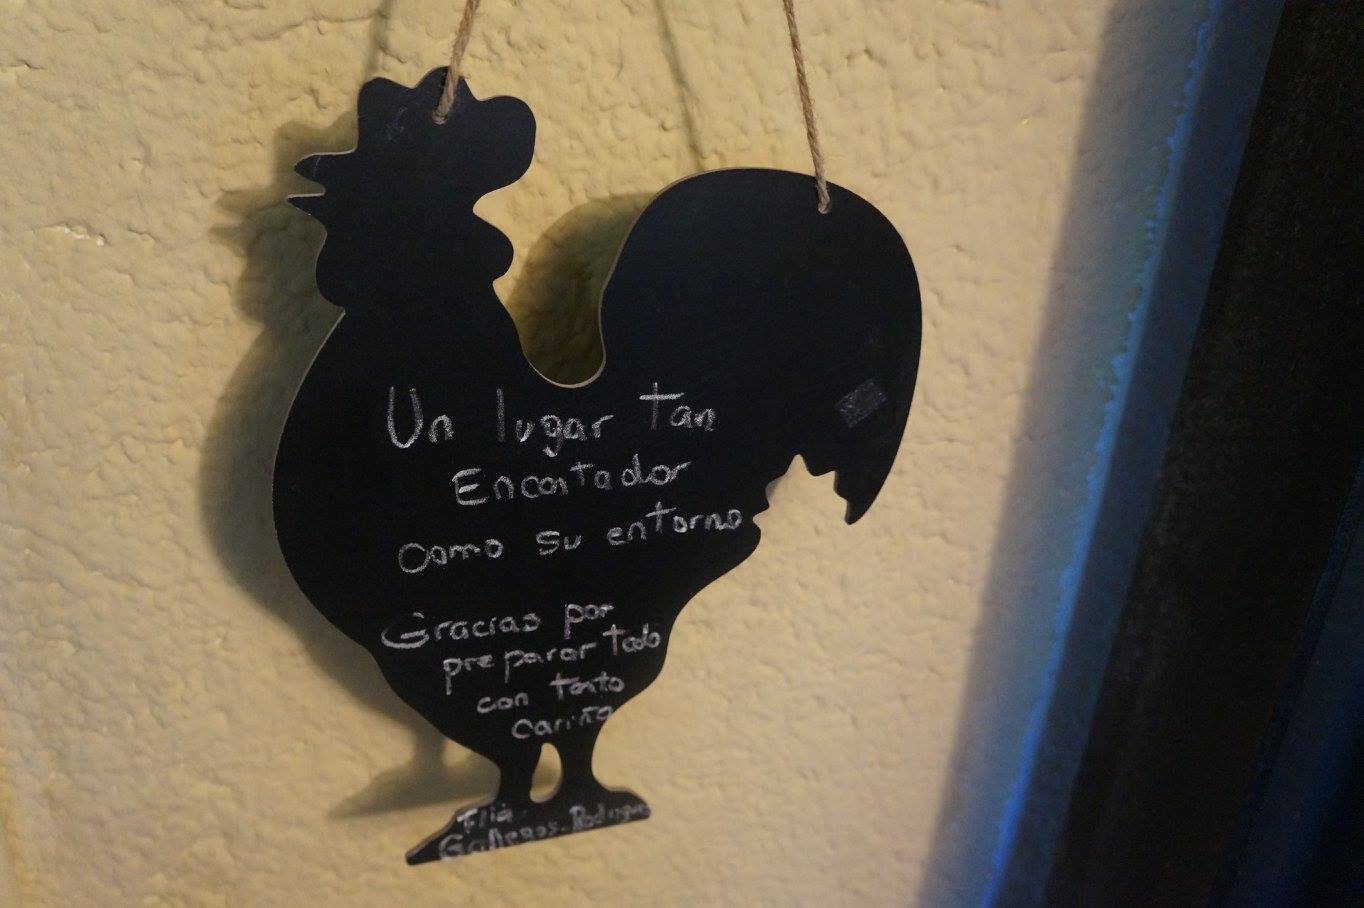 Un lugar tan
Encantador
como su entorno
Gracias por
preparar todo
con tanto
cariño
Flia.
Gallegos. Rodriguez